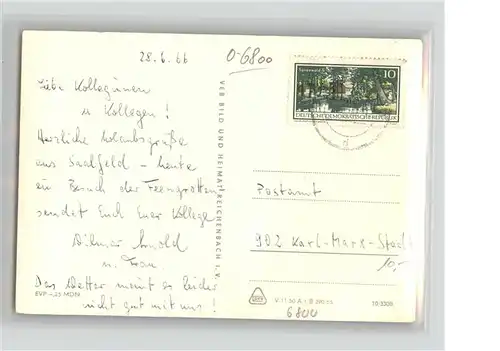 28.6.66
0-6800
Liebe Kolleginnen
u Kollegen!
Herzliche Urlaubsgrüße
aus Saalfeld – heute
ein Besuch der Feengrotten
sendet Euch Euer Kollege
Arnold
u. Frau.
Das Wetter meint es leider
nicht gut mit uns!
EVP –,25 MDN
VEB BILD UND HEIMAT REICHENBACH I. V.
Spreewald
10
DEUTSCHE DEMOKRATISCHE REPUBLIK
Postamt
902 Karl-Marx-Stadt
10,–
V 11 50 A 1 B
6800